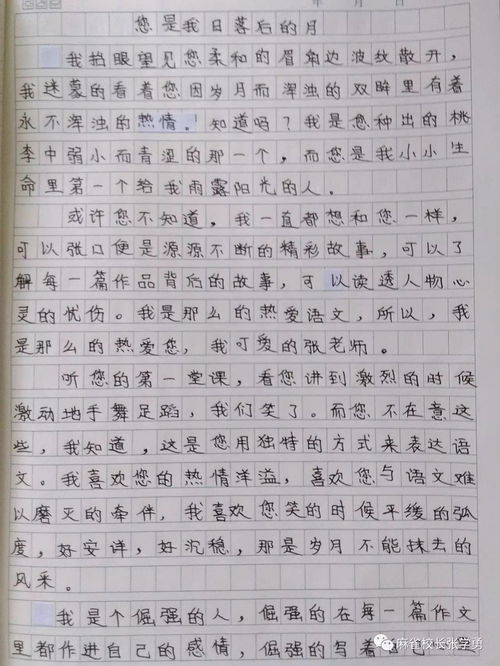 年 月 日
您是我日落后的月
我抬眼望见您柔和的眉角边波纹散开，
我迷蒙的看着您因岁月而浑浊的双眸里有着
永不浑浊的热情。知道吗？我是您种出的桃
李中弱小而青涩的那一个，而您是我小小生
命里第一个给我雨露阳光的人。
或许您不知道，我一直都想和您一样，
可以张口便是源源不断的精彩故事，可以了
解每一篇作品背后的故事，可以读透人物心
灵的忧伤。我是那么的热爱语文，所以，我
是那么的热爱您，我可爱的张老师。
听您的第一堂课，看您讲到激烈的时候
激动地手舞足蹈，我们笑了。而您不在意这
些，我知道，这是您用独特的方式来表达语
文。我喜欢您的热情洋溢，喜欢您与语文难
以磨灭的牵伴，我喜欢您笑的时候平缓的弧
度，好安详，好沉稳，那是岁月不能抹去的
风采。
我是个倔强的人，倔强的在每一篇作文
里都作进自己的感情，倔强的写着
麻雀校长张学勇